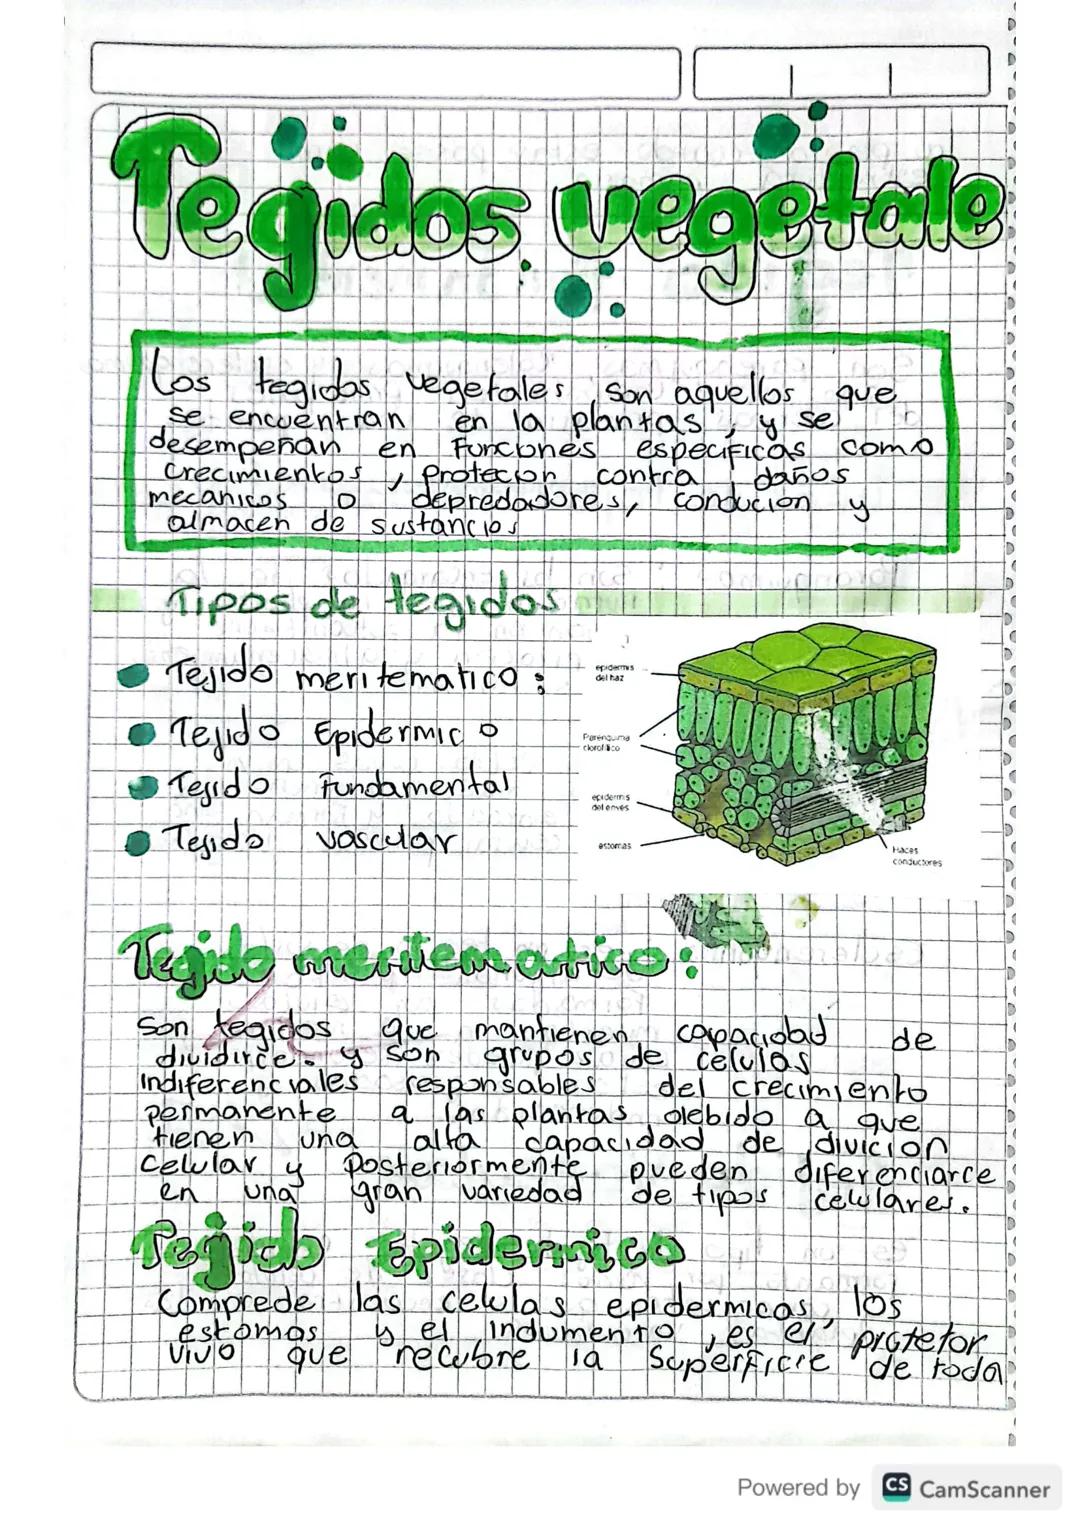 Tegidos vegetale
Los tegidos vegetales son aquellos que
se encuentran en la plantas, y se
desempeñan en funciones especificas como
crecimientos, protecion contra daños
mecanicos o depredadores, conducion y
almacen de sustancias
Tipos de tegidos
Tejido meritematico:
Tejido Epidermico
Tejido Fundamental
Tejido vascular
epidermis
del haz
Parenquima
clorofilico
epidermis
del enves
estomas
Haces
conductores
Tegido meritematico:
Son tegidos que mantienen capacidad de
dividirce. y son grupos de celulas
indiferenciales responsables del crecimiento
permanente a las plantas debido a que
tienen una alta capacidad de divicion
celular y posteriormente pueden diferenciarce
en una gran variedad de tipos celulares.
Tejido Epidermico
Comprede las celulas epidermicas, los
estomas y el indumento, es el protetor
vivo que recubre la superficie de toda
Powered by CS CamScanner